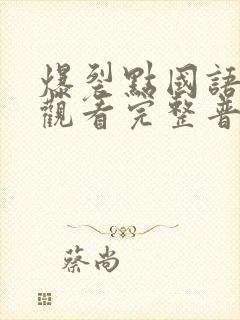 爆裂點國語
觀看完整普
蔡尚